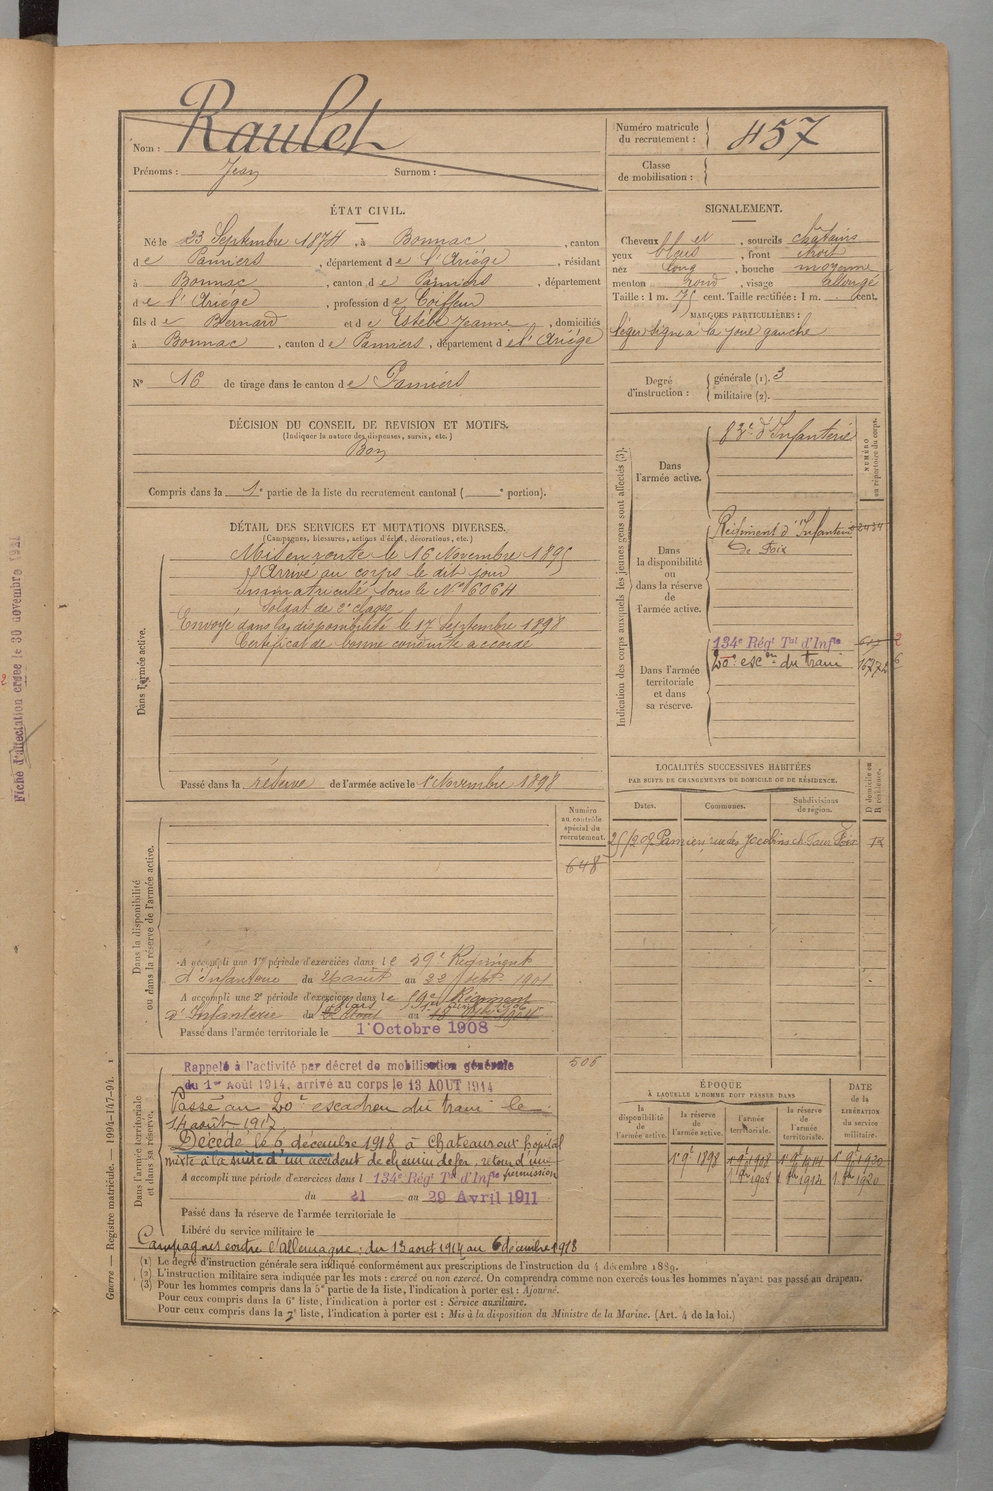 Nom : Raulet
Prénoms : Jean Surnom :
Numéro matricule du recrutement : 457
Classe de mobilisation :
ÉTAT CIVIL.
Né le 23 Septembre 1874, à Bonnac, canton
de Pamiers, département de l'Ariége, résidant
à Bonnac, canton de Pamiers, département
de l'Ariége, profession de Coiffeur
fils de Bernard et de Estèbe Jeanne, domiciliés
à Bonnac, canton de Pamiers, département de l'Ariége
N° 16 de tirage dans le canton de Pamiers
DÉCISION DU CONSEIL DE REVISION ET MOTIFS.
(Indiquer la nature des dispenses, sursis, etc.)
Bon
Compris dans la 1e partie de la liste du recrutement cantonal ( e portion).
SIGNALEMENT.
Cheveux et, sourcils châtains
yeux bleus, front étroit
nez long, bouche moyenne
menton rond, visage allongé
Taille : 1 m. 75 cent. Taille rectifiée : 1 m. cent.
MARQUES PARTICULIÈRES :
léger signe à la joue gauche
Degré d'instruction : générale (1). 3
militaire (2).
DÉTAIL DES SERVICES ET MUTATIONS DIVERSES.
(Campagnes, blessures, actions d'éclat, décorations, etc.)
Dans l'armée active.
Mis en route le 16 Novembre 1895
Arrivé au corps le dit jour
Immatriculé sous le N° 6064
Soldat de 2e classe
Envoyé dans la disponibilité le 17 Septembre 1898
Certificat de bonne conduite accordé
Passé dans la réserve de l'armée active le 1 Novembre 1898
Indication des corps auxquels les jeunes gens sont affectés (3).
NUMÉRO au répertoire du corps.
Dans l'armée active.
83e d'Infanterie
Dans la disponibilité ou dans la réserve de l'armée active.
Régiment d'Infanterie
de Foix
Dans l'armée territoriale et dans sa réserve.
134e Régt Tal d'Infie
20e escon du train
LOCALITÉS SUCCESSIVES HABITÉES
PAR SUITE DE CHANGEMENTS DE DOMICILE OU DE RÉSIDENCE.
Dates. Communes. Subdivisions de région. D domicile ou R résidence.
Pamiers rue des Jacobins Foix R
Dans la disponibilité ou dans la réserve de l'armée active.
Numéro au contrôle spécial du recrutement.
648
A accompli une 1re période d'exercices dans le 59e Régiment
d'Infanterie du 26 août au 22 sept. 1901
A accompli une 2e période d'exercices dans le Régiment
d'Infanterie du au
Passé dans l'armée territoriale le 1 Octobre 1908
Dans l'armée territoriale et dans sa réserve.
506
Rappelé à l'activité par décret de mobilisation générale
du 1er Août 1914, arrivé au corps le 13 AOUT 1914
Passé au 20e escadron du train le
14 août 1917
Décédé le 6 décembre 1918 à Chateauroux hopital
mixte à la suite d'un accident de chemin de fer, retour d'une
permission
A accompli une période d'exercices dans l 134e Régt Tal d'Infie
du 21 au 29 Avril 1911
Passé dans la réserve de l'armée territoriale le
Libéré du service militaire le
Campagnes contre l'Allemagne : du 13 aout 1914 au 6 decembre 1918
ÉPOQUE
À LAQUELLE L'HOMME DOIT PASSER DANS
la disponibilité de l'armée active. la réserve de l'armée active. l'armée territoriale. la réserve de l'armée territoriale.
DATE de la LIBÉRATION du service militaire.
(1) Le degré d'instruction générale sera indiqué conformément aux prescriptions de l'instruction du 4 décembre 1889.
(2) L'instruction militaire sera indiquée par les mots : exercé ou non exercé. On comprendra comme non exercés tous les hommes n'ayant pas passé au drapeau.
(3) Pour les hommes compris dans la 5e partie de la liste, l'indication à porter est : Ajourné.
Pour ceux compris dans la 6e liste, l'indication à porter est : Service auxiliaire.
Pour ceux compris dans la 7e liste, l'indication à porter est : Mis à la disposition du Ministre de la Marine. (Art. 4 de la loi.)
Guerre — Registre matricule. — 1994-147-94.
Fiche d'affectation créée le 30 novembre 1921